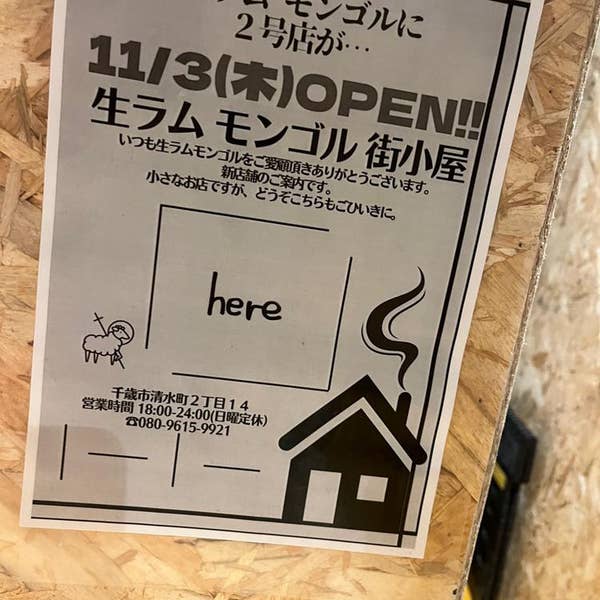 ラム モンゴルに
２号店が…
11/3(木)OPEN!!
生ラム モンゴル 街小屋
いつも生ラムモンゴルをご愛顧頂きありがとうございます。
新店舗のご案内です。
小さなお店ですが、どうぞこちらもごひいきに。
here
千歳市清水町２丁目１４
営業時間 18:00-24:00(日曜定休)
☎080-9615-9921